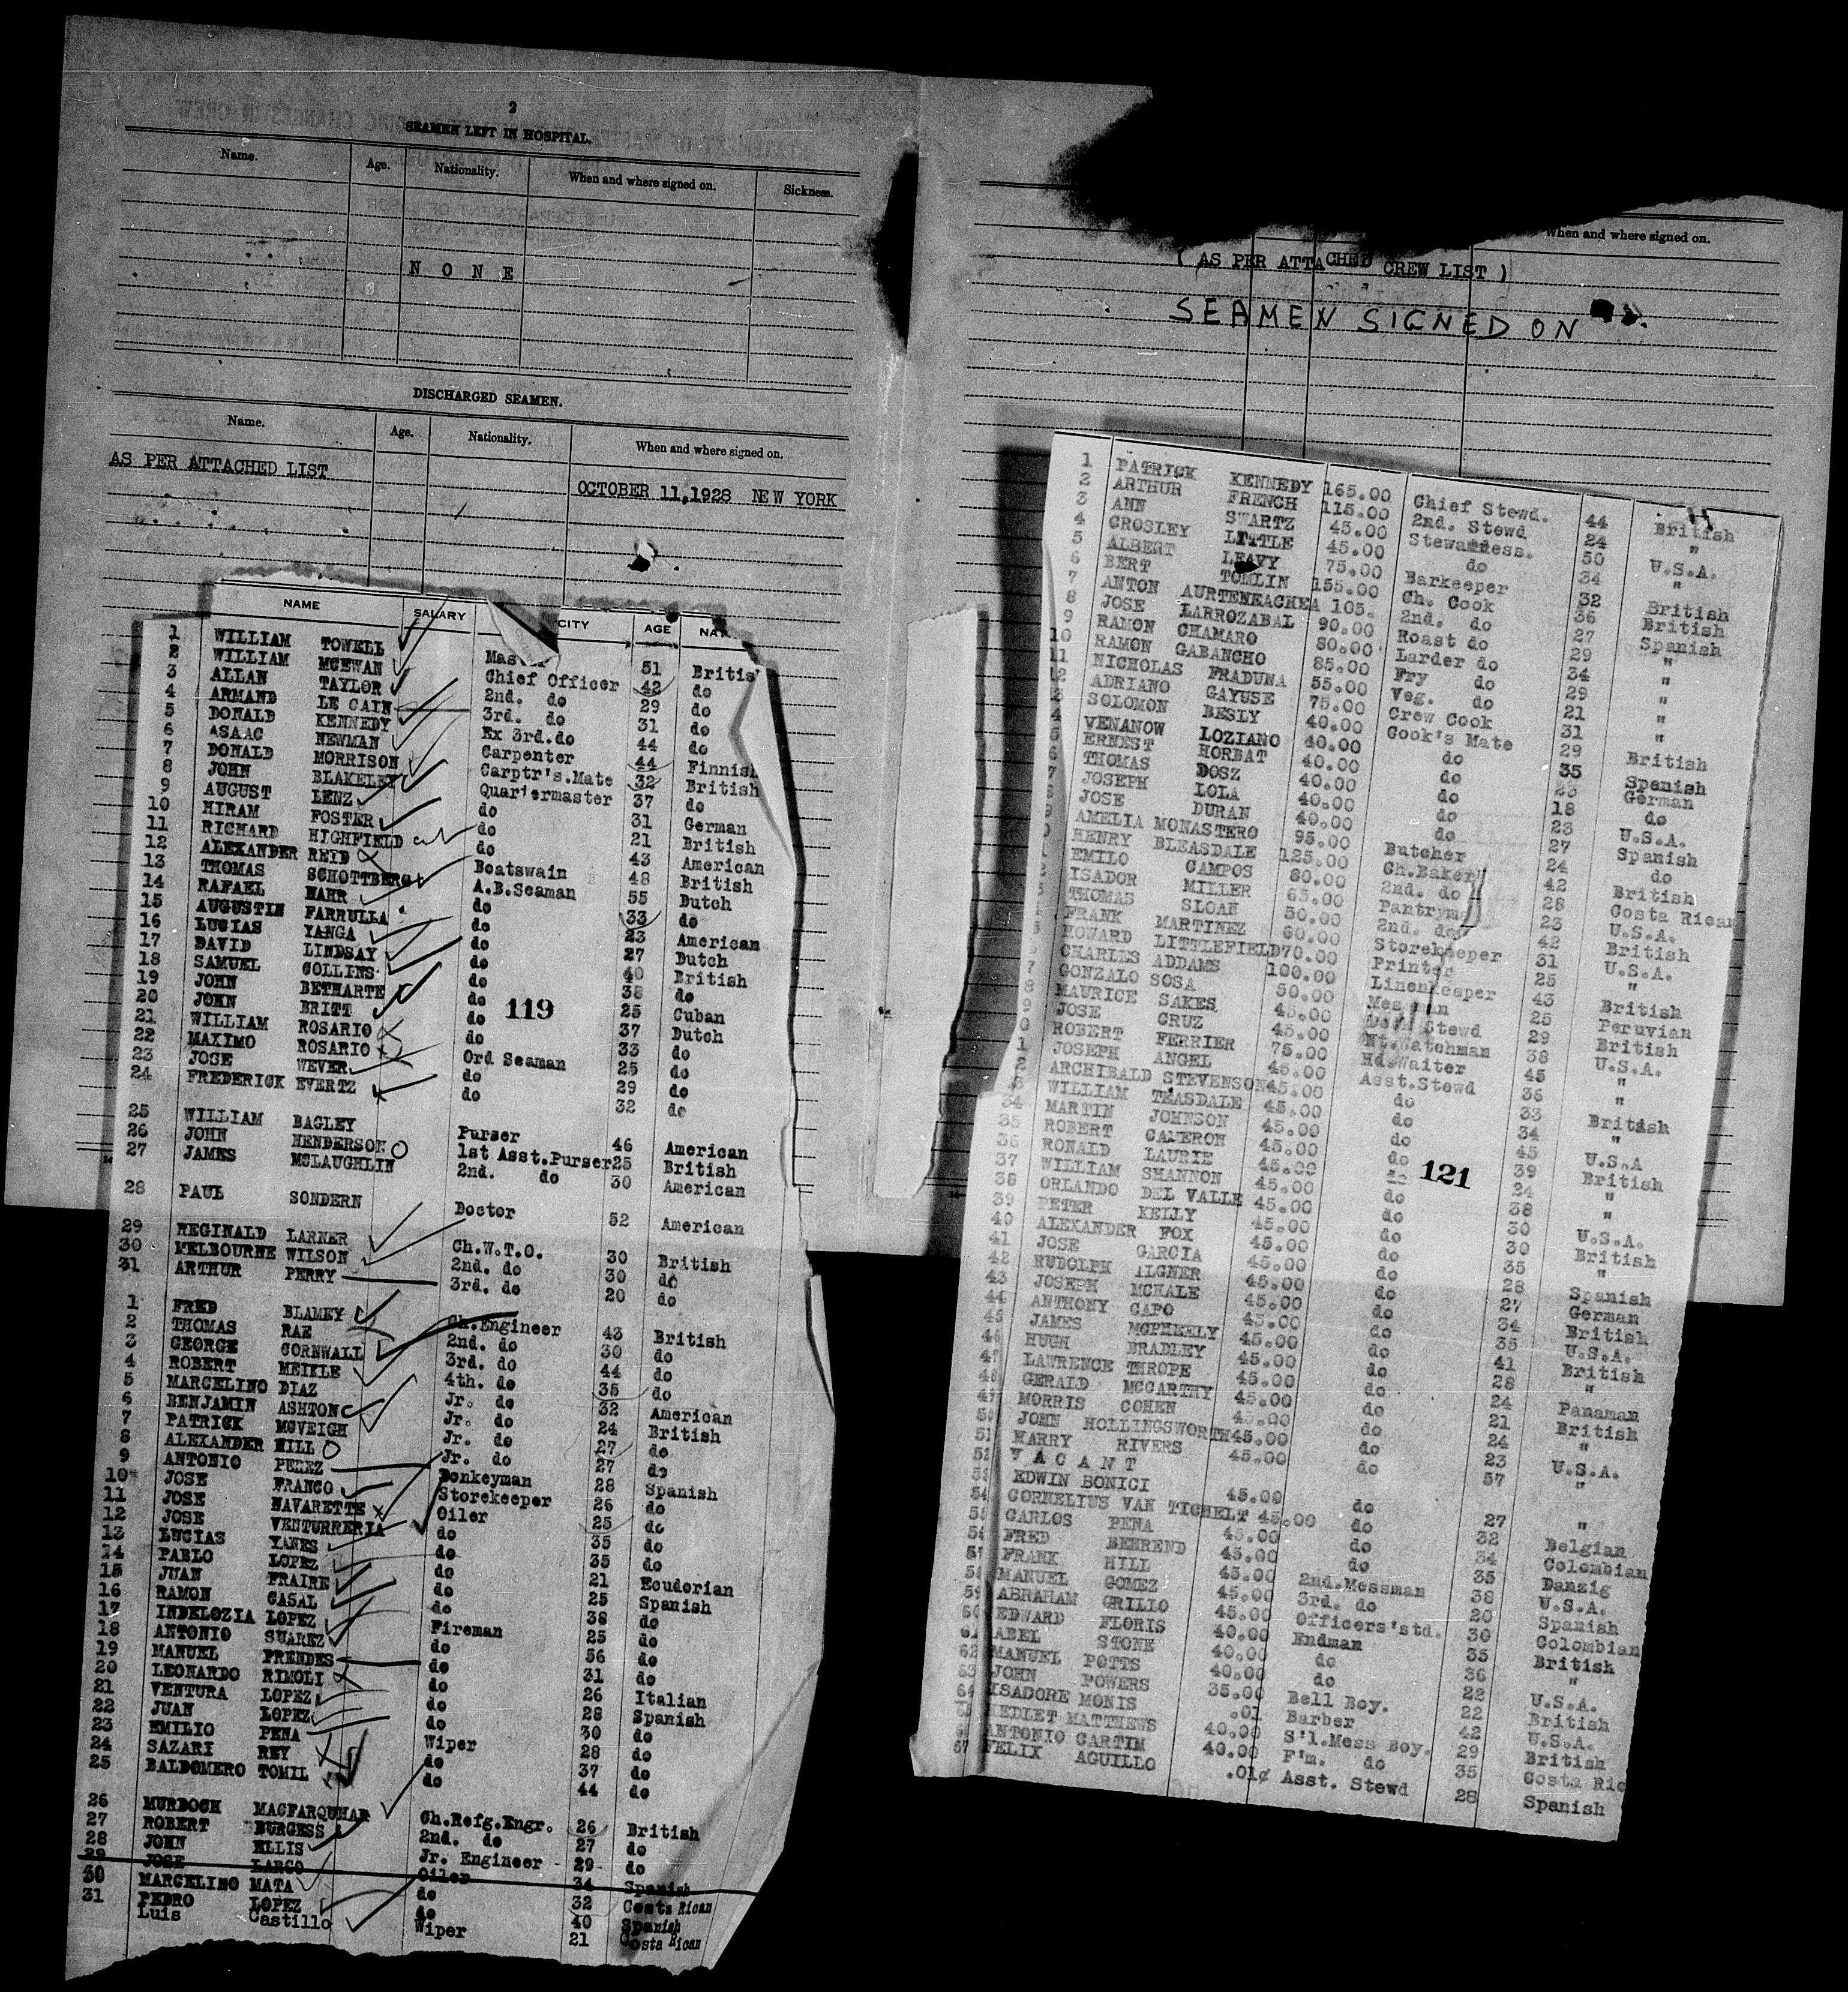 2
SEAMEN LEFT IN HOSPITAL.
Name. Age. Nationality. When and where signed on. Sickness.
N O N E
DISCHARGED SEAMEN.
Name. Age. Nationality. When and where signed on.
AS PER ATTACHED LIST OCTOBER 11,1928 NEW YORK
NAME SALARY CITY AGE NAT
1 WILLIAM TOWELL Master 51 British
2 WILLIAM MCEWAN Chief Officer 42 do
3 ALLAN TAYLOR 2nd. do 29 do
4 ARMAND LE CAIN 3rd. do 31 do
5 DONALD KENNEDY Ex 3rd.do 44 do
6 ASAAC NEWMAN Carpenter 44 Finnish
7 DONALD MORRISON Carptr's.Mate 32 British
8 JOHN BLAKELEY Quartermaster 37 do
9 AUGUST LENZ do 31 German
10 HIRAM FOSTER do 21 British
11 RICHARD HIGHFIELD do 43 American
12 ALEXANDER REID Boatswain 48 British
13 THOMAS SCHOTTBERG A.B.Seaman 55 Dutch
14 RAFAEL NAHR do 33 do
15 AUGUSTIN FARRULLA do 23 American
16 LUCIAS YANGA do 27 Dutch
17 DAVID LINDSAY do 40 British
18 SAMUEL COLLINS do 38 do
19 JOHN BETHARTE do 25 Cuban
20 JOHN BRITT do 37 Dutch
21 WILLIAM ROSARIO do 33 do
22 MAXIMO ROSARIO Ord Seaman 25 do
23 JOSE WEVER do 29 do
24 FREDERICK EVERTZ do 32 do
119
25 WILLIAM BAGLEY Purser 46 American
26 JOHN HENDERSON 1st Asst.Purser 25 British
27 JAMES MCLAUGHLIN 2nd. do 30 American
28 PAUL SONDERN Doctor 52 American
29 REGINALD LARNER Ch.W.T.O. 30 British
30 MELBOURNE WILSON 2nd. do 30 do
31 ARTHUR PERRY 3rd. do 20 do
1 FRED BLAMEY Ch.Engineer 43 British
2 THOMAS RAE 2nd. do 30 do
3 GEORGE CORNWALL 3rd. do 44 do
4 ROBERT MEIKLE 4th. do 35 do
5 MARCELINO DIAZ Jr. do 32 American
6 BENJAMIN ASHTON Jr. do 24 British
7 PATRICK MCVEIGH Jr. do 27 do
8 ALEXANDER HILL Jr. do 27 do
9 ANTONIO PEREZ Donkeyman 28 Spanish
10 JOSE FRANCO Storekeeper 26 do
11 JOSE NAVARETTE Oiler 25 do
12 JOSE VENTURRERIA do 35 do
13 LUCIAS YANES do 35 do
14 PABLO LOPEZ do 21 Ecudorian
15 JUAN FRAIRE do 25 Spanish
16 RAMON CASAL do 38 do
17 INDELOZIA LOPEZ Fireman 25 do
18 ANTONIO SUAREZ do 56 do
19 MANUEL PRENDES do 31 do
20 LEONARDO RIMOLI do 26 Italian
21 VENTURA LOPEZ do 28 Spanish
22 JUAN LOPEZ do 30 do
23 EMILIO PENA Wiper 28 do
24 SAZARI REY do 37 do
25 BALDOMERO TOMIL do 44 do
26 MURDOCH MACFARQUHAR Ch.Refg.Engr. 26 British
27 ROBERT BURGESS 2nd. do 27 do
28 JOHN ELLIS Jr. Engineer 29 do
29 JOSE LARGO Oiler 34 Spanish
30 MARCELINO MATA do 32 Costa Rican
31 PEDRO LOPEZ do 40 Spanish
Luis Castillo Wiper 21 Costa Rican
When and where signed on.
( AS PER ATTACHED CREW LIST )
SEAMEN SIGNED ON
1 PATRICK KENNEDY 165.00 Chief Stewd. 44 British
2 ARTHUR FRENCH 115.00 2nd. Stewd 24 "
3 ANN SWARTZ 45.00 Stewardess. 50 U.S.A.
4 CROSLEY LITTLE 45.00 do 34 "
5 ALBERT LEAVY 75.00 Barkeeper 32 British
6 BERT TOMLIN 155.00 Ch. Cook 36 British
7 ANTON AURTENEACHEA 105. 2nd. do 27 Spanish
8 JOSE LARROZABAL 90.00 Roast do 29 "
9 RAMON CHAMARO 80.00 Larder do 34 "
10 RAMON GABANCHO 85.00 Fry do 29 "
11 NICHOLAS FRADUNA 55.00 Veg. do 21 "
12 ADRIANO GAYUSE 75.00 Crew Cook 31 "
3 SOLOMON BESLY 40.00 Cook's Mate 29 British
4 VENANOW LOZIANO 40.00 do 35 Spanish
5 ERNEST HORBAT 40.00 do 23 German
6 THOMAS DOSZ 40.00 do 18 do
7 JOSEPH LOLA 40.00 do 23 U.S.A.
8 JOSE DURAN 40.00 do 27 Spanish
9 AMELIA MONASTERO 95.00 Butcher 24 do
0 HENRY BLEASDALE 125.00 Ch.Baker 42 British
1 EMILO CAMPOS 80.00 2nd. do 28 Costa Rican
2 ISADOR MILLER 65.00 Pantryma 23 U.S.A.
3 THOMAS SLOAN 50.00 2nd. do 42 British
FRANK MARTINEZ 60.00 Storekeeper 31 U.S.A.
HOWARD LITTLEFIELD 70.00 Printer 25 "
6 CHARLES ADDAMS 100.00 Linenkeeper 43 British
7 GONZALO SOSA 50.00 Messman 25 Peruvian
8 MAURICE SAKES 45.00 Stewd 29 British
9 JOSE CRUZ 45.00 Nt.Watchman 38 U.S.A.
0 ROBERT FERRIER 75.00 Hd.Waiter 45 "
1 JOSEPH ANGEL 45.00 Asst.Stewd 36 "
2 ARCHIBALD STEVENSON 45.00 do 33 British
3 WILLIAM TEASDALE 45.00 do 34 "
34 MARTIN JOHNSON 45.00 do 45 U.S.A
35 ROBERT CAMERON 45.00 do 39 British
36 RONALD LAURIE 45.00 do 24 "
37 WILLIAM SHANNON 45.00 do 38 "
121
38 ORLANDO DEL VALLE 45.00 do 30 U.S.A.
39 PETER KELLY 45.00 do 30 British
40 ALEXANDER FOX 45.00 do 35 "
41 JOSE GARCIA 45.00 do 28 Spanish
42 RUDOLPH ILGNER 45.00 do 27 German
43 JOSEPH MCHALE 45.00 do 34 British
44 ANTHONY CAPO 45.00 do 35 U.S.A.
45 JAMES MCPHEELY 45.00 do 41 British
46 HUGH BRADLEY 45.00 do 28 "
47 LAWRENCE THROPE 45.00 do 24 Panaman
48 GERALD MCCARTHY 45.00 do 21 British
49 MORRIS COHEN 45.00 do 24 "
50 JOHN HOLLINGSWORTH 45.00 do 23 U.S.A.
51 HARRY RIVERS 45.00 do 57 "
52 V A C A N T
53 EDWIN BONICI 45.00 do 27 "
54 CORNELIUS VAN TICHELT 45.00 do 32 Belgian
55 CARLOS PENA 45.00 do 34 Colombian
56 FRED BEHREND 45.00 do 35 Danzig
57 FRANK HILL 45.00 2nd.Messman 38 U.S.A.
58 MANUEL GOMEZ 45.00 3rd. do 20 Spanish
59 ABRAHAM GRILLO 45.00 Officers'std. 30 Colombian
60 EDWARD FLORIS 40.00 Endman 35 British
61 ABEL STONE 40.00 do 36 "
62 MANUEL POTTS 40.00 do 22 U.S.A.
63 JOHN POWERS 35.00 Bell Boy. 22 British
64 ISADORE MONIS .01 Barber 42 U.S.A.
65 HEDLET MATTHEWS 40.00 S'l.Mess Boy. 29 British
66 ANTONIO CARTIM 40.00 F'm. do 35 Costa Ric
67 FELIX AGUILLO .01¢ Asst. Stewd 28 Spanish